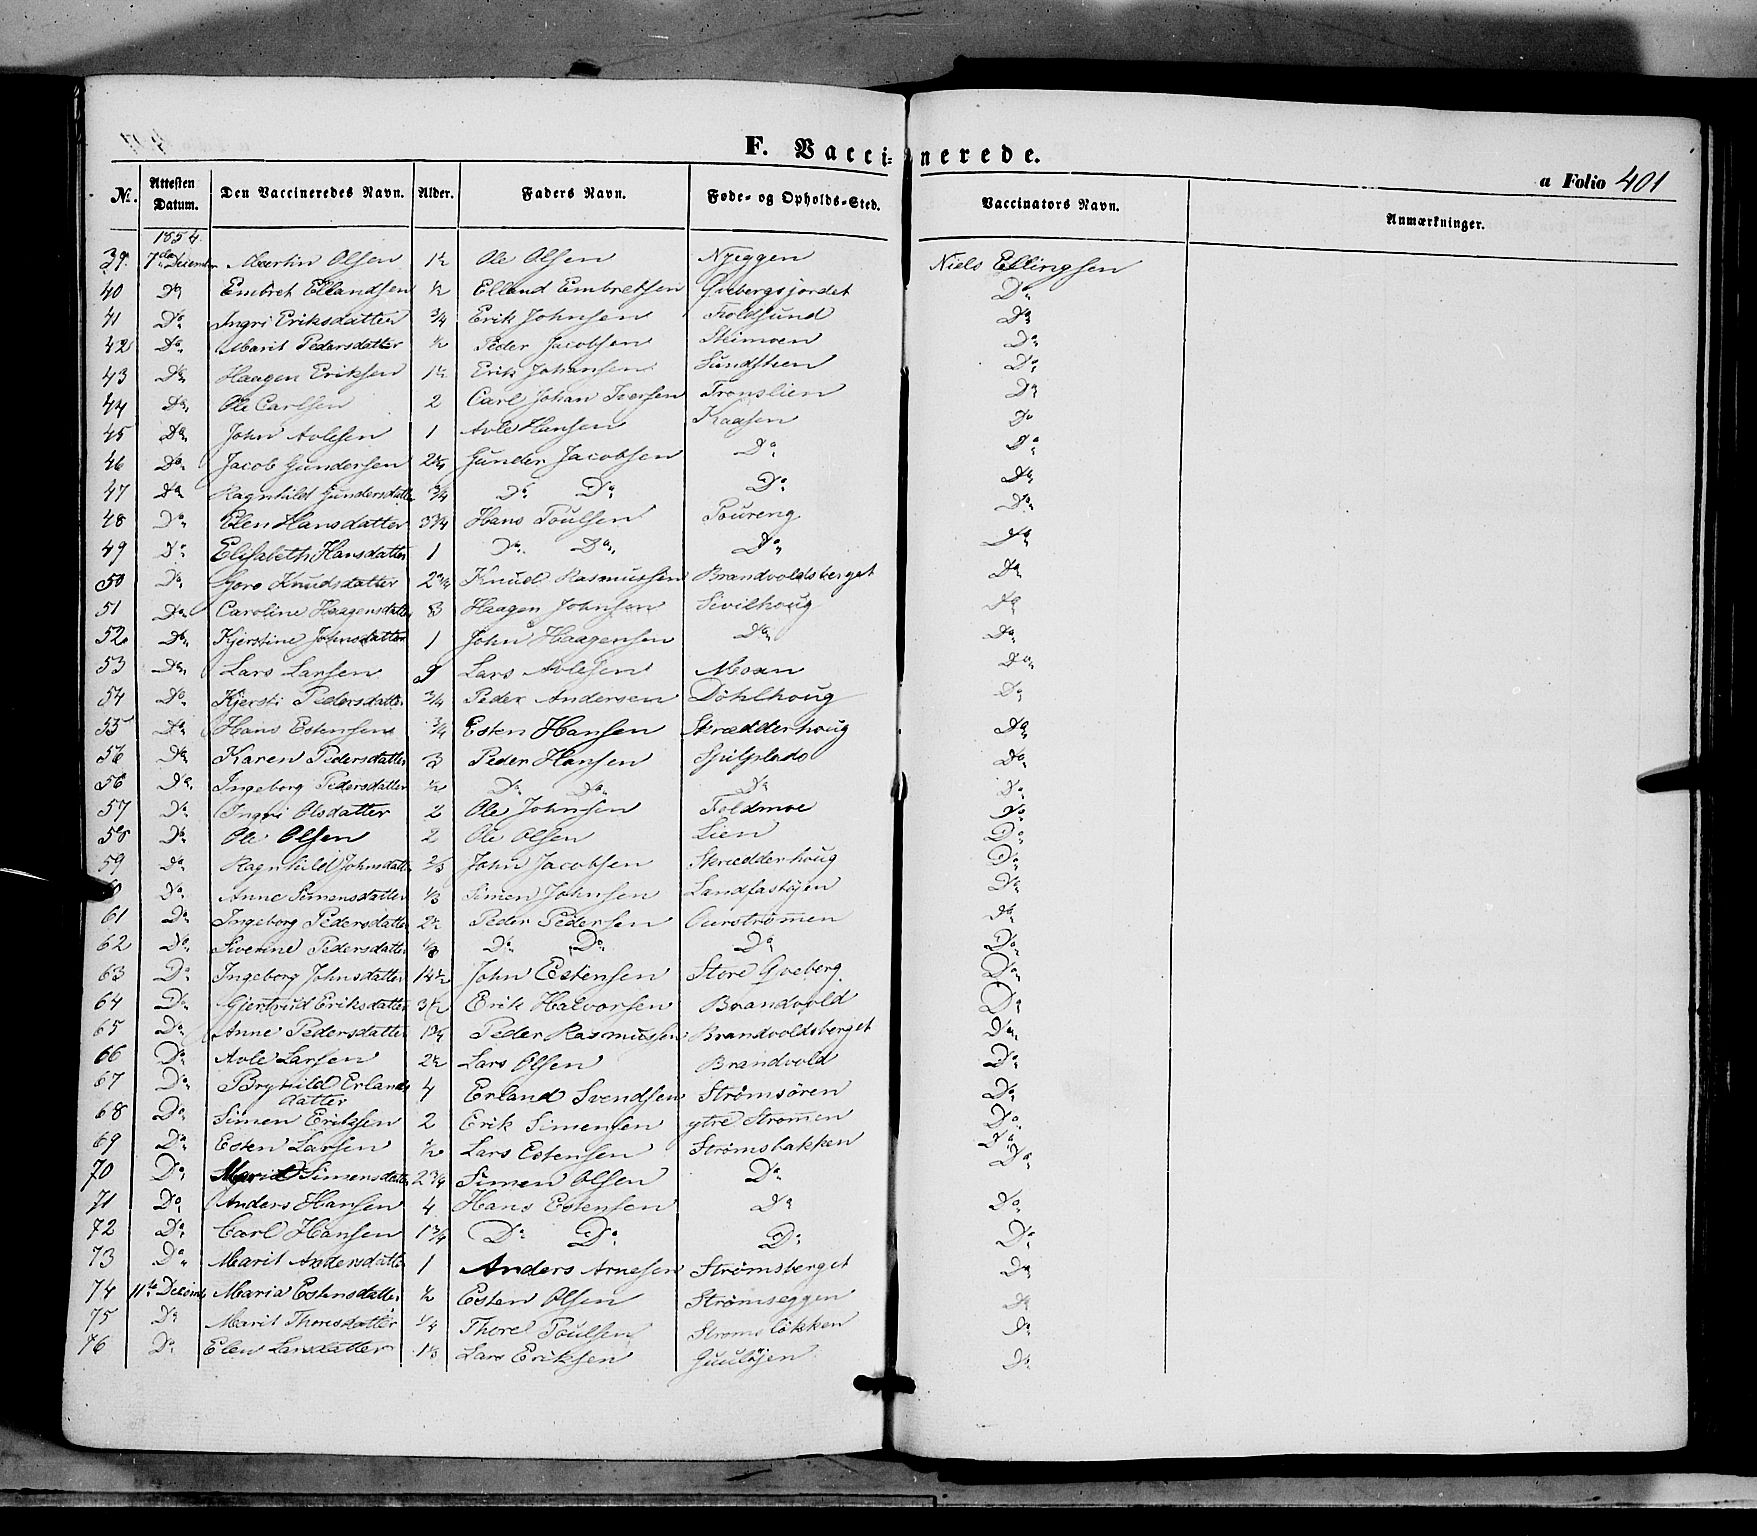 F. Vaccinerede.
a Folio 401
No. Attesten Datum. Den Vaccineredes Navn. Alder. Faders Navn. Føde- og Opholds-Sted. Vaccinators Navn. Anmærkninger.
1854.
39. 7de Decembr Martin Olsen 1½ Ole Olsen Nyeggen Niels Ellingsen
40 Do Embret Ellandsen ½ Elland Embretsen Qvebergsjordet Do
41 Do Ingri Eriksdatter ¾ Erik Johnsen Foldsund Do
42 Do Marit Pedersdatter ½ Peder Jacobsen Steimoen Do
43 Do Haagen Eriksen 1½ Erik Johansen Sundsteen Do
44 Do Ole Carlsen 2 Carl Johan Iversen Tronslien Do
45 Do John Avlesen 1 Avle Hansen Kaasen Do
46 Do Jacob Gundersen 2¾ Gunder Jacobsen Do Do
47 Do Ragnhild Gundersdatter ¾ Do Do Do Do
48 Do Elen Hansdatter 3¾ Hans Poulsen Poureng Do
49 Do Elisabeth Hansdatter 1 Do Do Do Do
50 Do Goro Knudsdatter 2¾ Knud Rasmussen Brandvoldsberget Do
51 Do Caroline Haagensdatter 3 Haagen Johnsen Sivilhoug Do
52 Do Kjerstine Johnsdatter 1 John Haagensen Do Do
53 Do Lars Larsen 9 Lars Avlesen Moan Do
54 Do Kjersti Pedersdatter ¾ Peder Andersen Döhlhoug Do
55 Do Hans Estensen ¾ Esten Hansen Skrædderhoug Do
56 Do Karen Pedersdatter 3 Peder Hansen Do
56 Do Ingeborg Pedersdatter ½ Do Do Do Do
57 Do Ingri Olsdatter 2 Ole Johnsen Foldmoe Do
58 Do Ole Olsen 2 Ole Olsen Lien Do
59 Do Ragnhild Johnsdatter ⅔ John Jacobsen Skrædderhoug Do
Do Anne Simensdatter ⅓ Simen Johnsen Landfastøien Do
61 Do Ingeborg Pedersdatter 2½ Peder Pedersen Ourstrømmen Do
62 Do Siverine Pedersdatter Do Do Do Do
63 Do Ingeborg Johnsdatter 14½ John Estensen Store Qveberg Do
64 Do Gjertrud Eriksdatter 3½ Erik Halvorsen Brandvold Do
65 Do Anne Pedersdatter 1¾ Peder Rasmussen Brandvoldsberget Do
66 Do Avle Larsen 2½ Lars Olsen Brandvold Do
67 Do Brynild Erlands 4 Erland Svendsen Strømsøren Do
datter
68 Do Simen Eriksen 2 Erik Simensen ytre Strømmen Do
69 Do Esten Larsen ½ Lars Estensen Strømsbakken Do
70 Do Marit Simensdatter 2¾ Simen Olsen Do Do
71 Do Anders Hansen 4 Hans Estensen Do Do
72 Do Carl Hansen 1¾ Do Do Do Do
73 Do Marit Andersdatter 1 Anders Arnesen Strømsberget Do
74 11te Decembr Maria Estensdatter ½ Esten Olsen Strømseggen Do
75 Do Marit Thoresdatter ¼ Thore Poulsen Strømsløkken Do
76 Do Elen Larsdatter 1⅓ Lars Eriksen Guuløjen Do